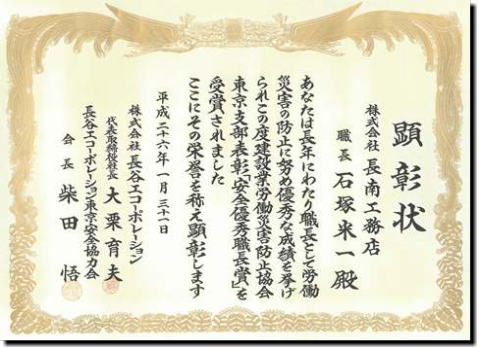 顕彰状
株式会社 長南工務店
職長 石塚米一殿
あなたは長年にわたり職長として労働
災害の防止に努め優秀な成績を挙げ
られこの度建設業労働災害防止協会
東京支部表彰「安全優秀職長賞」を
受賞されました
ここにその栄誉を称え顕彰します
平成二十六年一月三十一日
株式会社 長谷工コーポレーション
代表取締役社長 大栗育夫
長谷工コーポレーション東京安全協力会
会長 柴田悟